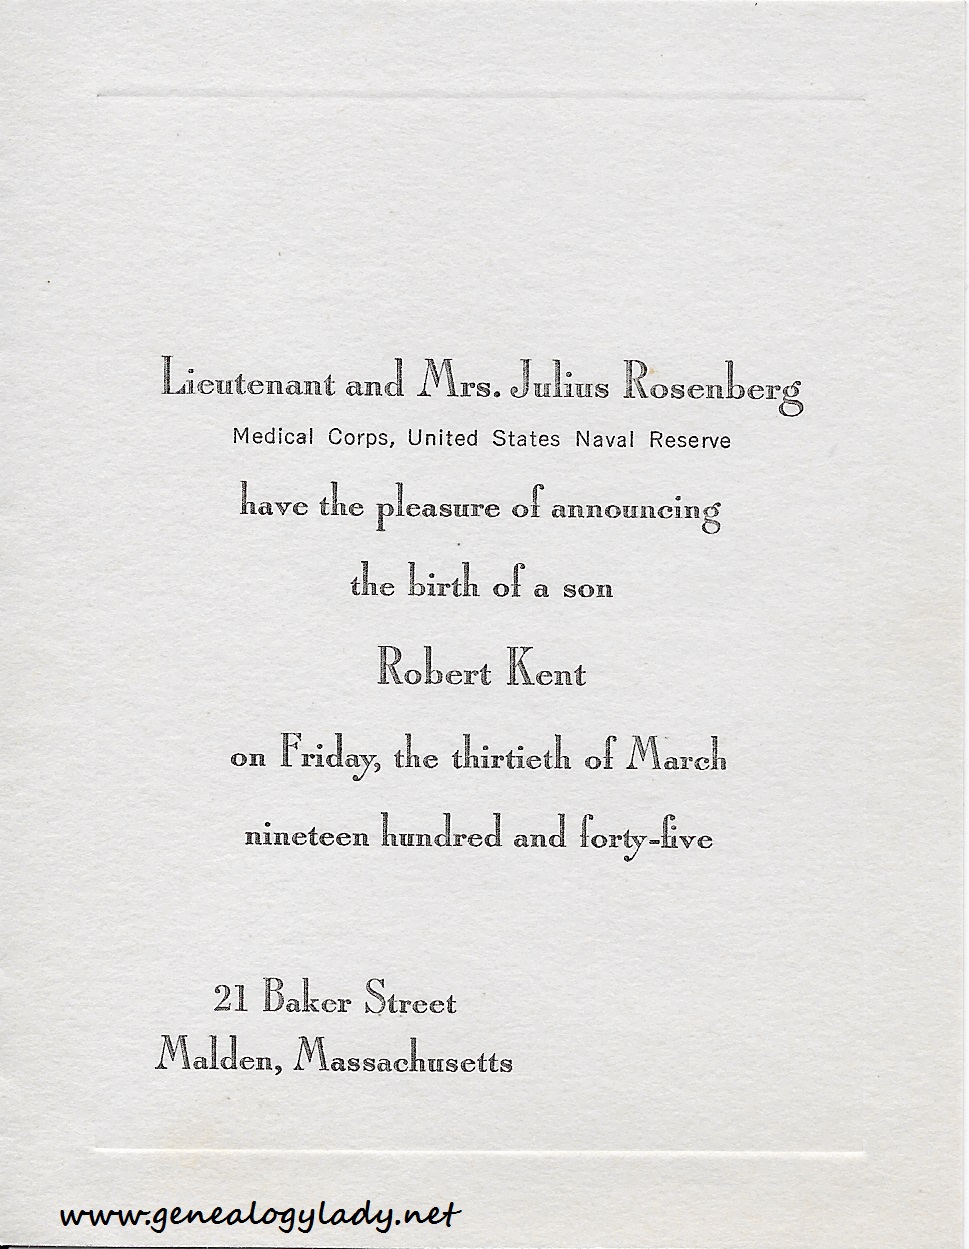 Lieutenant and Mrs. Julius Rosenberg
Medical Corps, United States Naval Reserve
have the pleasure of announcing
the birth of a son
Robert Kent
on Friday, the thirtieth of March
nineteen hundred and forty-five
21 Baker Street
Malden, Massachusetts
www.genealogylady.net